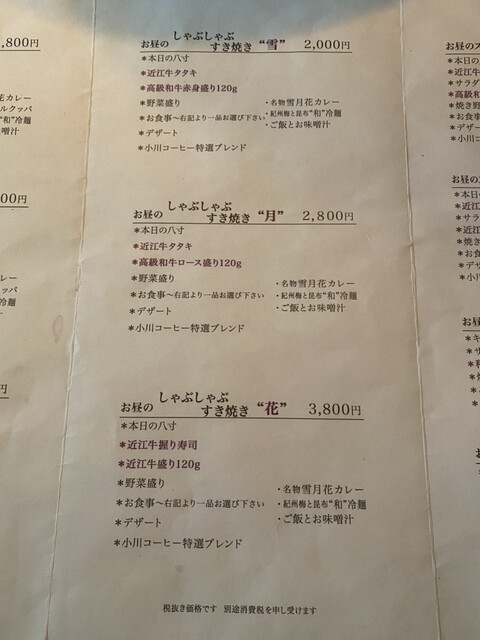 ,800円
花カレー
ルクッパ
“和”冷麺
味噌汁
00円
カレー
ッパ
冷麺
汁
円
お昼の しゃぶしゃぶ すき焼き “雪” 2,000円
＊本日の八寸
＊近江牛タタキ
＊高級和牛赤身盛り120g
＊野菜盛り ・名物雪月花カレー
＊お食事～右記より一品お選び下さい ・紀州梅と昆布“和”冷麺
＊デザート ・ご飯とお味噌汁
＊小川コーヒー特選ブレンド
お昼の しゃぶしゃぶ すき焼き “月” 2,800円
＊本日の八寸
＊近江牛タタキ
＊高級和牛ロース盛り120g
＊野菜盛り ・名物雪月花カレー
＊お食事～右記より一品お選び下さい ・紀州梅と昆布“和”冷麺
＊デザート ・ご飯とお味噌汁
＊小川コーヒー特選ブレンド
お昼の しゃぶしゃぶ すき焼き “花” 3,800円
＊本日の八寸
＊近江牛握り寿司
＊近江牛盛り120g
＊野菜盛り ・名物雪月花カレー
＊お食事～右記より一品お選び下さい ・紀州梅と昆布“和”冷麺
＊デザート ・ご飯とお味噌汁
＊小川コーヒー特選ブレンド
税抜き価格です 別途消費税を申し受けます
お昼のス
＊本日の
＊近江牛
＊サラダ
＊高級和
＊焼き野
＊お食事
＊デザー
＊小川コ
お昼の
＊本日の
＊近江
＊サラ
＊近江
＊焼き
＊お食
＊デザ
＊小川
お昼